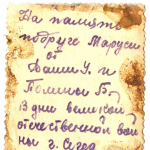 На память
подруге Маруси
от
Даши У. и
Полины Б.
В дни великой
отечественной вой
ны г.